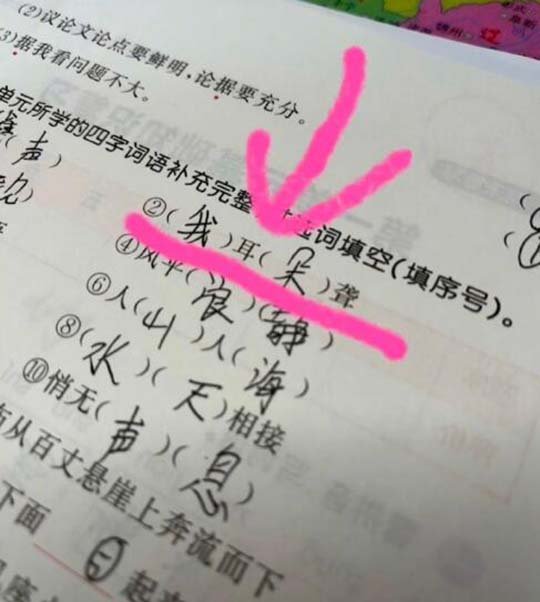 (2)议论文论点要鲜明,论据要充分。
3)据我看问题不大。
单元所学的四字词语补充完整 词填空(填序号)。
(声)
②(我)耳(朵)聋
④风平(浪)(静)
⑥人(山)人(海)
⑧(水)(天)相接
⑩悄无(声)(息)
从百丈悬崖上奔流而下
下面 ⊖ 起